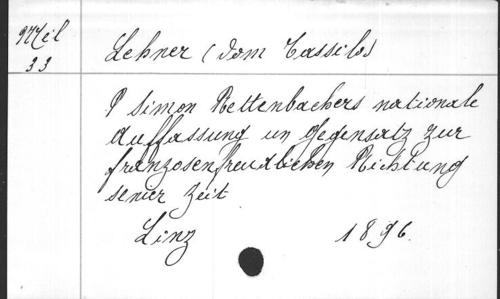 Lehner (Dom Tassilo)
33
P Simon Rettenbachers nationale
Auffassung im Gegensatz zur
franzosenfreudlichen Richtung
seiner Zeit
Linz 1896.